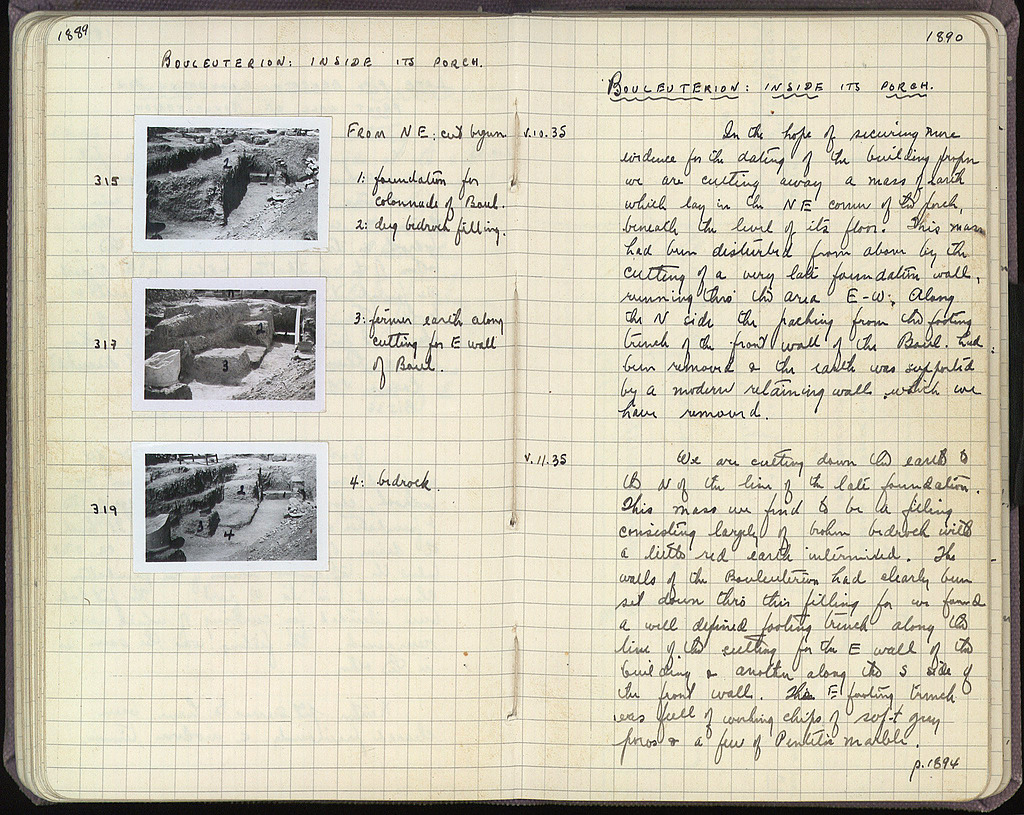 1889
BOULEUTERION: INSIDE ITS PORCH.
315
FROM NE; cut begun
1: foundation for
colonnade of Boul.
2: dug bedrock filling.
317
3: firmer earth along
cutting for E wall
of Boul.
319
4: bedrock.
1890
BOULEUTERION: INSIDE ITS PORCH.
V.10.35
In the hope of securing more
evidence for the dating of the building proper
we are cutting away a mass of earth
which lay in the NE corner of the porch,
beneath the level of its floor. This mass
had been disturbed from above by the
cutting of a very late foundation wall,
running thro the area E-W. Along
the N side the packing from the footing
trench of the front wall of the Boul. had
been removed & the earth was supported
by a modern retaining wall which we
have removed.
V.11.35
We are cutting down the earth to
the N of the line of the late foundation.
This mass we find to be a filling
consisting largely of broken bedrock with
a little red earth intermixed. The
walls of the Bouleuterion had clearly been
set down thro this filling for we found
a well defined footing trench along the
line of the cutting for the E wall of the
building & another along the S side of
the front wall. This E footing trench
was full of working chips of soft gray
poros & a few of Pentelic marble.
p. 1894